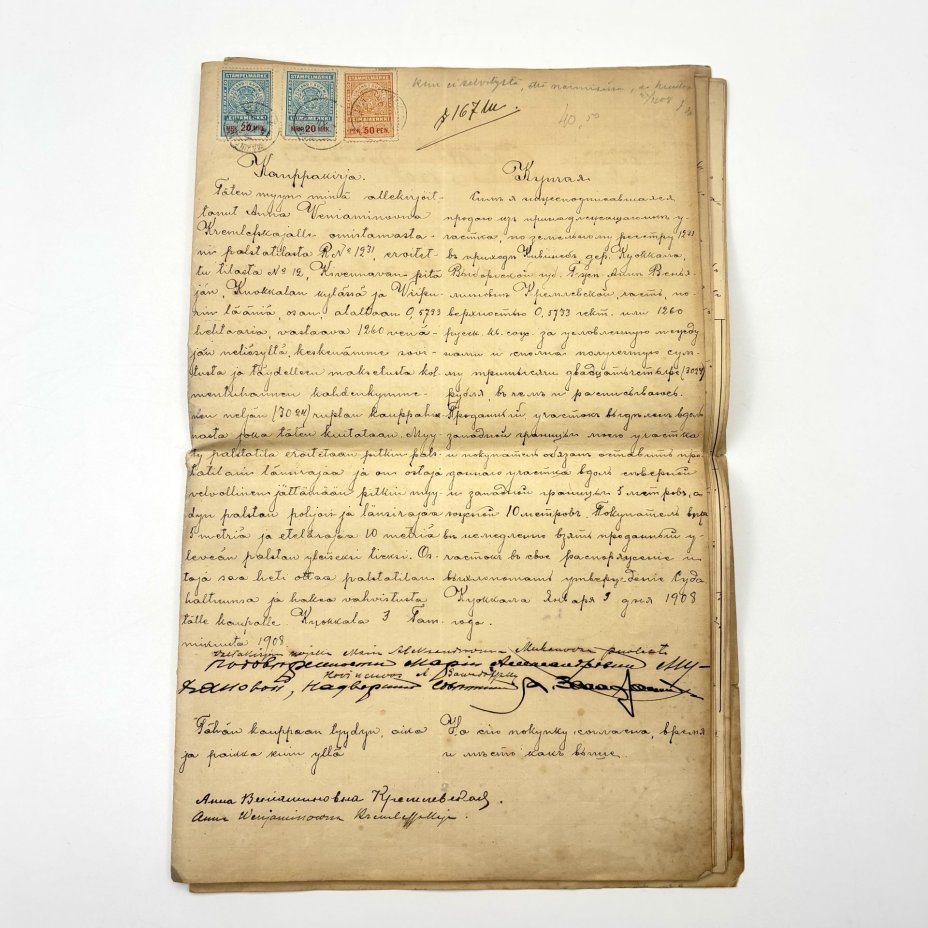 STÄMPELMÄRKE
LEIMAMERKKI
MRK. 20 MRK.
STÄMPELMÄRKE
LEIMAMERKKI
MRK. 20 MRK.
STÄMPELMÄRKE
LEIMAMERKKI
PEN. 50 PEN.
167
40,50
Kauppakirja.
Täten myyn minä allekirjoit-
tanut Anna Veniaminovna
Kremlefskajalle omistamasta-
ni palstatilasta R.№ 12³¹, eroitet-
tu tilasta № 12, Kivennavan pitä-
jän, Kuokkalan kylässä ja Viipu-
rin lääniä, osan, alaltaan 0,5733
hehtaaria, vastaava 1260 venä-
jän neliösyltä, keskenämme sovi-
tusta ja täydelleen maksetusta kol-
mentuhannen kahdenkymme-
nen neljän (3024) ruplan kauppahin-
nasta joka täten kuitataan. Myy-
ty palstatila eroitetaan pitkin pals-
tatilani länsirajaa ja on ostaja
velvollinen jättämään pitkin myy-
dyn palstan pohjois ja länsirajaa
5 metriä ja etelärajaa 10 metriä
leveän palstan yleiseksi tieksi. Os-
taja saa heti ottaa palstatilan
haltuunsa ja hakea vahvistusta
tälle kaupalle. Kuokkala 3 Tam-
mikuuta 1908.
Купчая.
Симъ я нижеподписавшаяся
продаю изъ принадлежащаго мнѣ у-
частка, по земельному регистру 12³¹
въ приходѣ Кивинебъ дер. Куоккала,
Выборгской губ. Г-жѣ Аннѣ Венья-
миновнѣ Кремлевской, часть, по-
верхностью 0,5733 гект. или 1260
русск. кв. саж. за условленную между
нами и сполна полученную сум-
му три тысячи двадцать четыре (3024)
рубля въ чемъ и расписываюсь.
Проданный участокъ выдѣленъ вдоль
западной границы моего участка
и покупатель обязанъ оставить
даннаго участка вдоль сѣверной
и западной границы 5 метровъ, а
южной 10 метровъ. Покупатель въ правѣ
немедленно взять проданный у-
частокъ въ свое распоряженіе и
выхлопотать утвержденіе Суда
Куоккала Января 3 дня 1908
года.
Valtakirjan nojalla Maria Aleksandrovna Muhanova puolesta
По довѣренности Маріи Александровны Му-
Hovineuvos A.
хановой, Надворный Совѣтникъ А.
Tähän kauppaan tyydyn, aika
ja paikka kuin yllä
На сію покупку согласна, время
и мѣсто какъ выше.
Анна Веніаминовна Кремлевская.
Anna Wenjaminowna Kremleffskija.